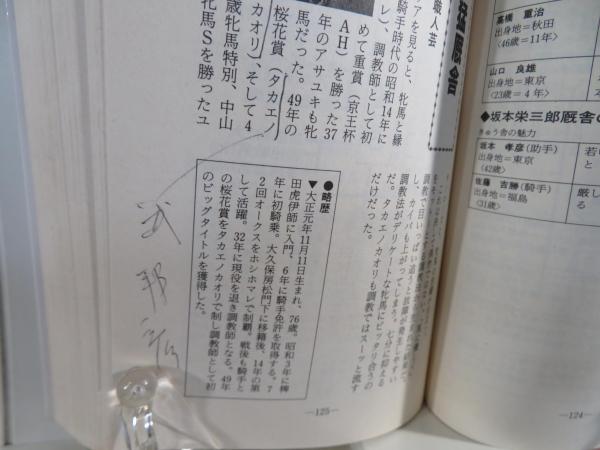 職人芸
アを見ると、牝馬と縁
騎手時代の昭和14年に
レ)、調教師として初
めて重賞(京王杯
AH)を勝った37
年のアサユキも牝
馬だった。49年の
桜花賞(タカエノ
カオリ)、そして4
歳牝馬特別、中山
牝馬Sを勝ったユ
調教法がデリケートな牝馬にピッタリ合うの
だ。タカエノカオリも調教ではスーッと流す
だけだった。
●略歴
▼大正元年11月11日生まれ、76歳。昭和3年に稗
田虎伊師に入門、6年に騎手免許を取得する。7
年に初騎乗。大久保房松門下に移籍後、14年の第
2回オークスをホシホマレで制覇。戦後も騎手と
して活躍。32年に現役を退き調教師となる。49年
の桜花賞をタカエノカオリで制し調教師として初
のビッグタイトルを獲得した。
武邦彦
—125—
高橋 重治
出身地=秋田
〈46歳=11年〉
山口 良雄
出身地=東京
〈23歳=4年〉
●坂本栄三郎厩舎の
きゅう舎の魅力
坂本 孝彦(助手)
出身地=東京
(42歳)
佐藤 吉勝(騎手)
出身地=福島
(31歳)
厳し
る
—124—